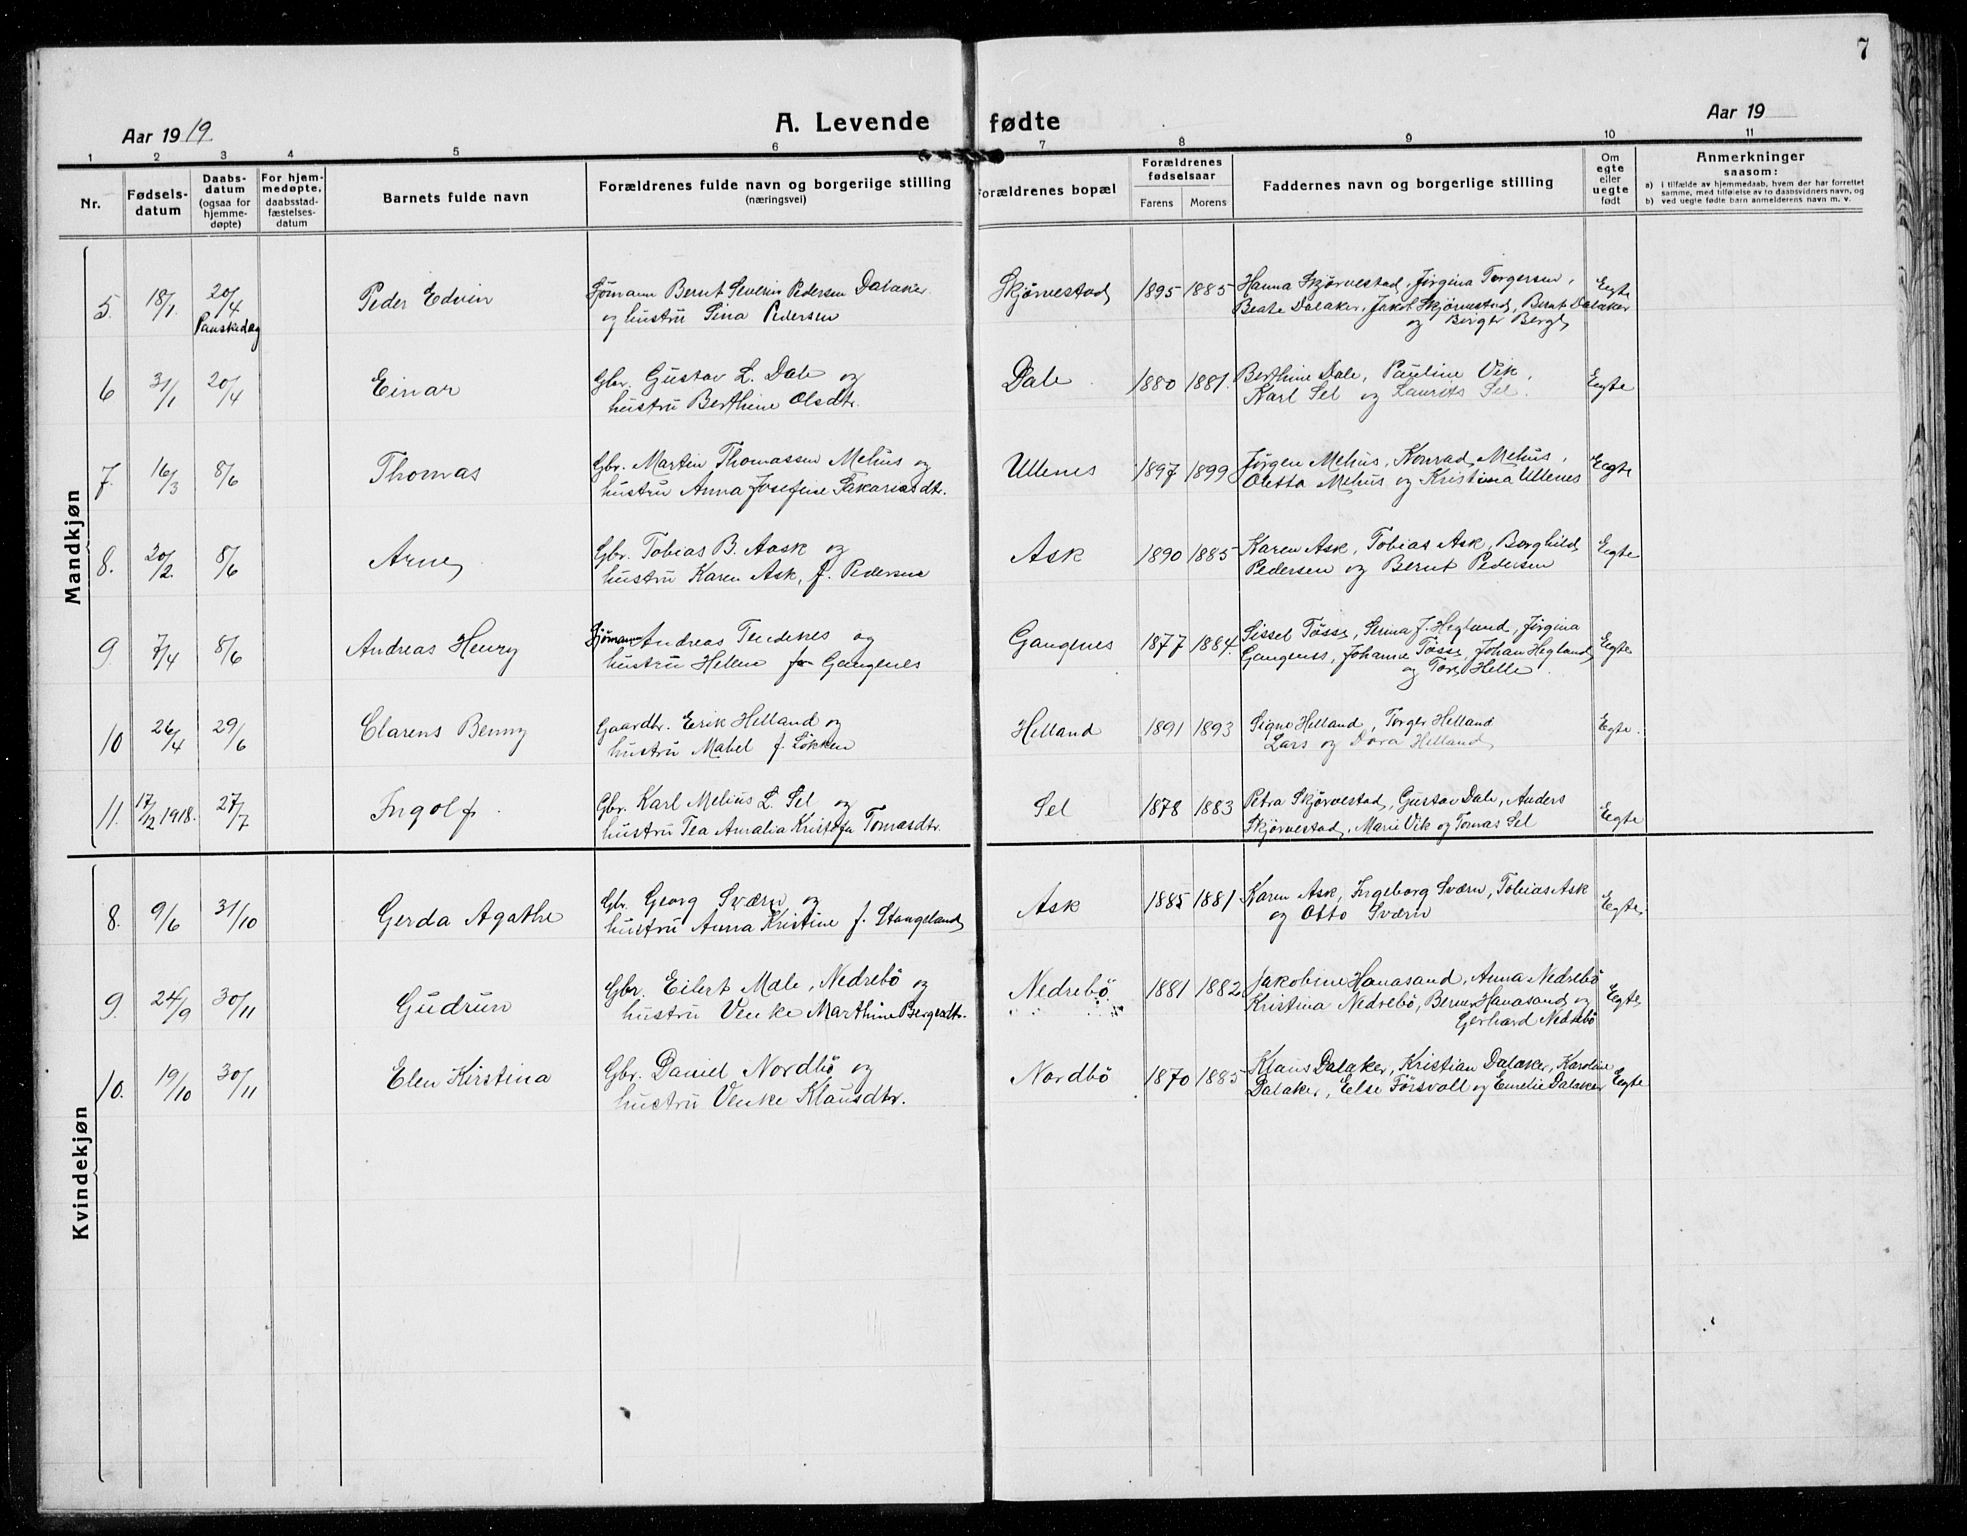 7
Aar 1919.
A. Levende fødte
Aar 19
1 2 3 4 5 6 7 8 9 10 11
Nr.
Fødsels-
datum
Daabs-
datum
(ogsaa for
hjemme-
døpte)
For hjem-
medøpte,
daabsstad-
fæstelses-
datum
Barnets fulde navn
Forældrenes fulde navn og borgerlige stilling
(næringsvei)
Forældrenes bopæl
Forældrenes
fødselsaar
Farens Morens
Faddernes navn og borgerlige stilling
Om
egte
eller
uegte
født
Anmerkninger
saasom:
a) i tilfælde av hjemmedaab, hvem der har forrettet
samme, med tilføielse av to daabsvidners navn, og
b) ved uegte fødte barn anmelderens navn m. v.
Mandkjøn
5. 18/1 20/4 Paaskedag Peder Edvin
Sjømann Bernt Severin Pedersen Dalaker
og hustru Sina Pedersen
Skjørvestad 1895 1885
Hanna Skjørvestad, Jørgina Torgersen,
Beate Dalaker, Jakob Skjørvestad, Bernt Dalaker
og Birger Berge
Egte
6 31/1 20/4 Einar
Gbr. Gustav L. Dale og
hustru Berthine Olsdtr.
Dale 1880 1881.
Berthine Dale, Pauline Vik,
Karl Sel og Laurits Sel.
Egte
7. 16/3 8/6 Thomas
Gbr. Martin Thomassen Mehus og
hustru Anna Josefine Sakariasdtr.
Ullenes 1897 1899
Jørgen Mehus, Konrad Mehus,
Oletta Mehus og Kristina Ullenes
Egte
8. 20/2. 8/6 Arne
Gbr. Tobias B. Aask og
hustru Karen Ask, f. Pedersen
Ask 1890 1885
Karen Ask, Tobias Ask, Borghild
Pedersen og Bernt Pedersen
Egte
9. 7/4 8/6 Andreas Henry
Sjømann Andreas Tendenes og
hustru Helene Gangenes
Gangenes 1877 1884.
Sissel Tøsse, Serina J. Hegland, Jørgina
Gangenes, Johanne Tøsse, Johan Hegland
og Tore Helle.
Egte
10 26/4 29/6 Clarens Benny
Gaardbr. Erik Helland og
hustru Mabel f. Løkken
Helland 1891 1893
Signe Helland, Torger Helland
Lars og Dora Helland
Egte.
11. 17/12 1918. 27/7 Ingolf.
Gbr. Karl Melius L. Sel og
hustru Tea Amalia Kristofa Tomasdtr.
Sel 1878 1883
Petra Skjørvestad, Gustav Dale, Anders
Skjørvestad, Marie Vik og Tomas Sel
Egte
Kvindekjøn
8. 9/6 31/10 Gerda Agathe
Gbr. Georg Sværn og
hustru Anna Kristine f. Stangeland
Ask 1885 1881
Karen Ask, Ingeborg Sværn, Tobias Ask
og Otto Sværn
Egte
9. 24/9 30/11 Gudrun
Gbr. Eilert Male, Nedrebö og
hustru Venke Marthine Bergesdtr.
Nedrebö 1881 1882
Jakobine Hanasand, Anna Nedrebö
Kristina Nedrebö, Berner Hanasand og
Gerhard Nedrebö
Egte
10. 19/10 30/11 Elen Kirstina
Gbr. Daniel Nordbö og
hustru Venke Klausdtr.
Nordbö 1870 1885
Klaus Dalaker, Kristian Dalaker, Karoline
Dalaker, Else Försvoll og Emelie Dalaker
Egte